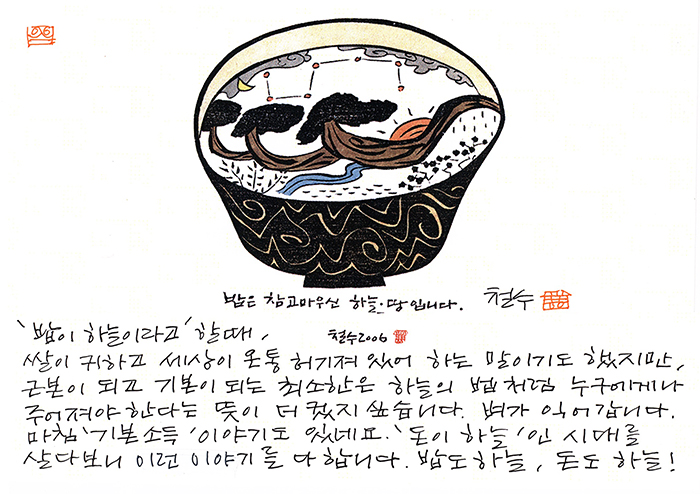 밥은 참 고마우신 하늘·땅입니다. 철수
철수2006
'밥이 하늘이라고' 할 때,
쌀이 귀하고 세상이 온통 허기져 있어 하는 말이기도 했지만,
근본이 되고 기본이 되는 최소한은 하늘의 법처럼 누구에게나
주어져야 한다는 뜻이 더 컸지 싶습니다. 벼가 익어갑니다.
마침 '기본소득' 이야기도 있네요. '돈이 하늘'인 시대를
살다보니 이런 이야기를 다 합니다. 밥도 하늘, 돈도 하늘!